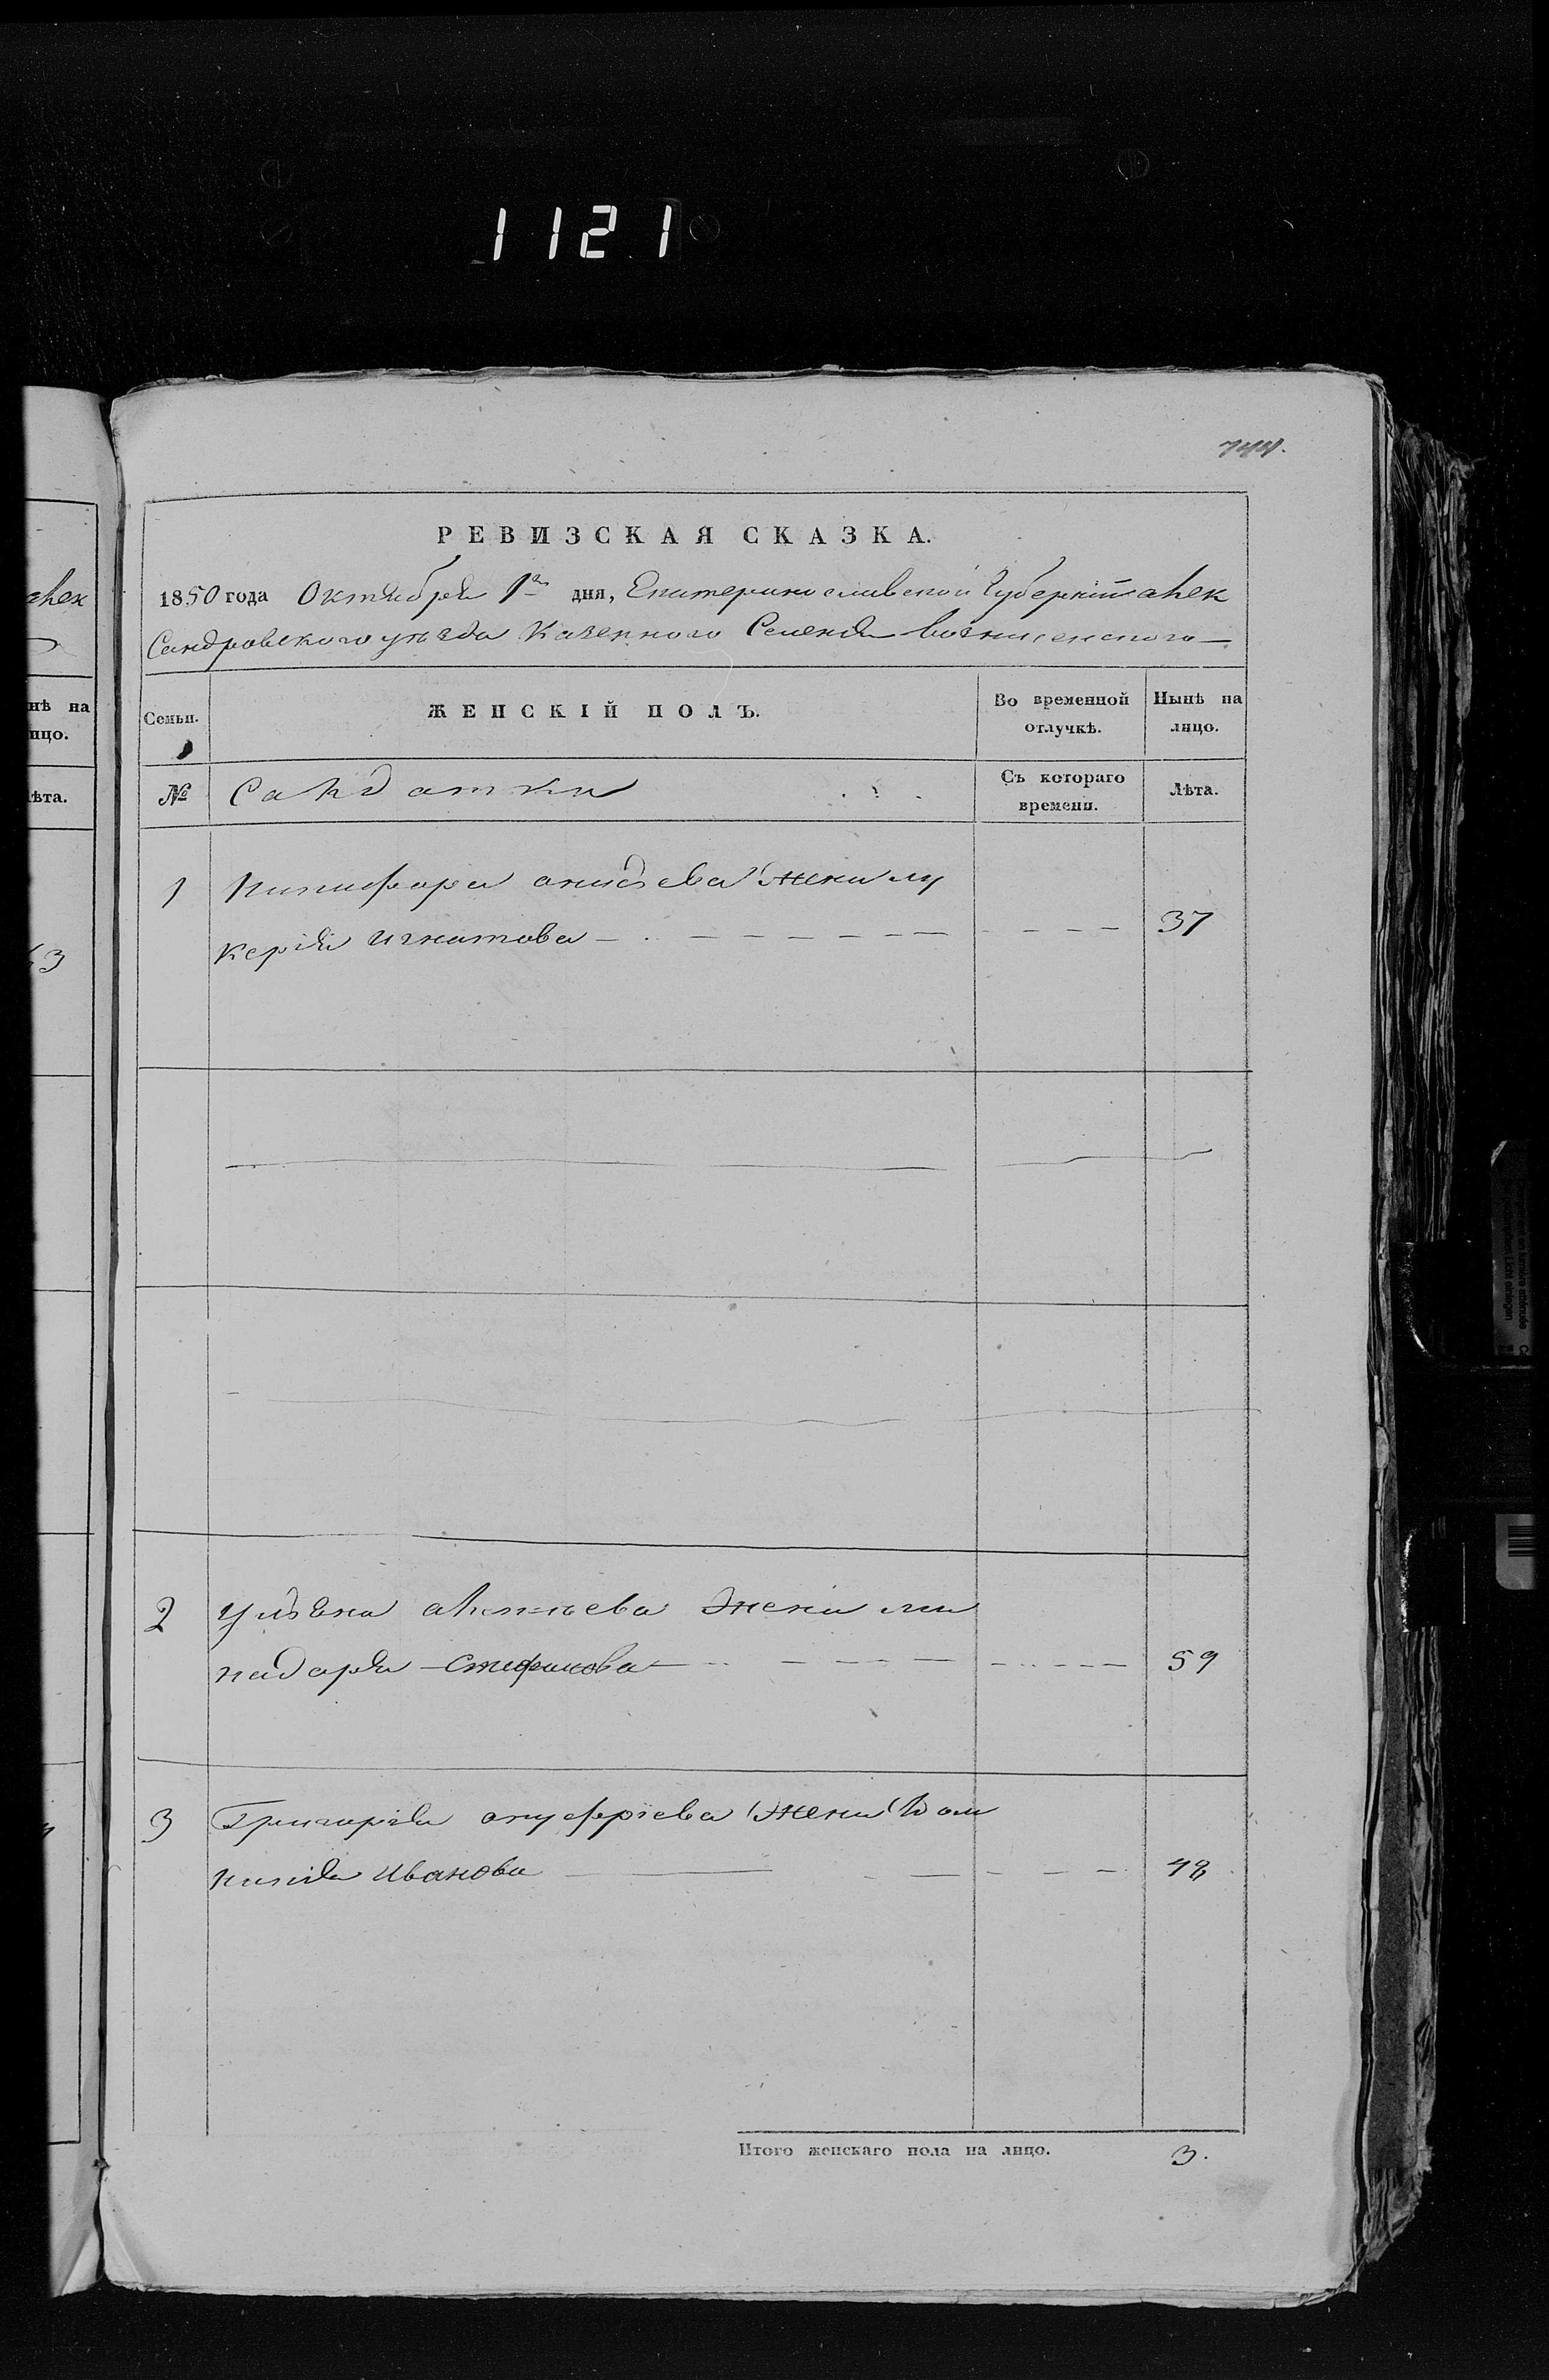 1121
744.
РЕВИЗСКАЯ СКАЗКА.
1850 года Октября 1го дня, Екатеринославской Губерніи алек
Сандровского уезда Казенного Селенія вознисенского
Семьи. ЖЕНСКІЙ ПОЛЪ. Во временной отлучкѣ. Нынѣ на лицо.
№ Салдатки Съ котораго времени. Лѣта.
1 Никифора жена лу
керія игнатова 37
2 жена ма
Стефанова 59
3 Григорія ануфріева жена Дом
никія Иванова 48
Итого женскаго пола на лицо. 3.
алек
нѣ на
лицо.
лѣта.